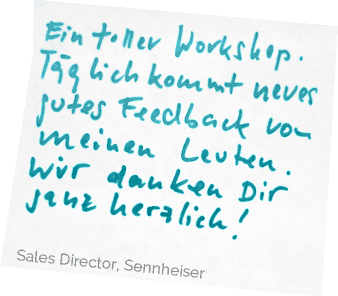 Ein toller Workshop.
Täglich kommt neues
gutes Feedback von
meinen Leuten.
Wir danken Dir
ganz herzlich!
Sales Director, Sennheiser